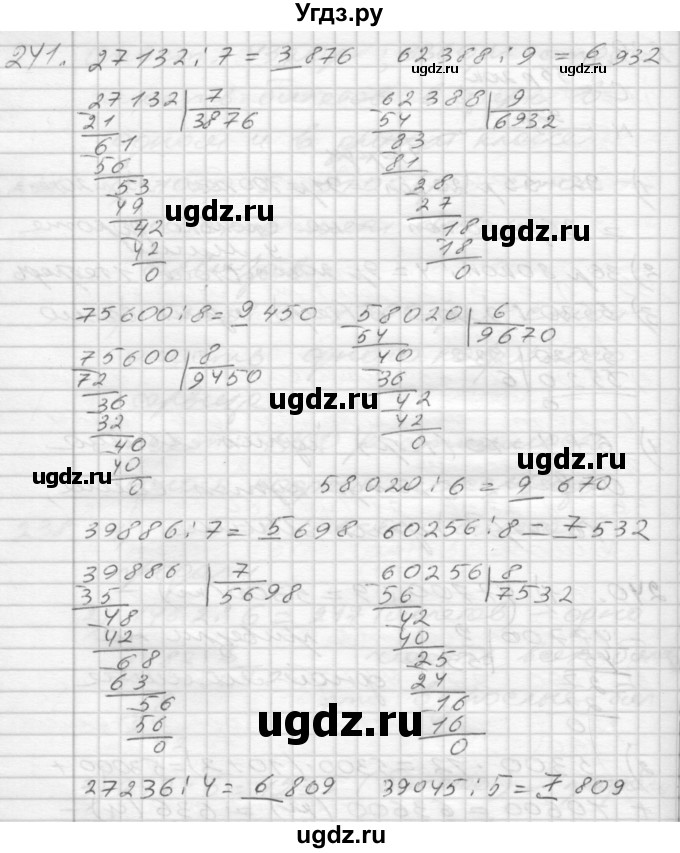 Угдз.ру
241. 27132:7=3876 62388:9=6932
ugdz.ru ugdz.ru
27132 7
21 3876
61
56
53
49
42
42
0
62388 9
54 6932
83
81
28
27
18
18
0
ugdz.ru ugdz.ru
75600:8=9450
75600 8
72 9450
36
32
40
40
0
58020 6
54 9670
40
36
42
42
0
ugdz.ru ugdz.ru
ugdz.ru ugdz.ru
58020:6=9670
39886:7=5698 60256:8=7532
39886 7
35 5698
48
42
68
63
56
56
0
60256 8
56 7532
42
40
25
24
16
16
0
ugdz.ru ugdz.ru
27236:4=6809 39045:5=7809
ugdz.ru